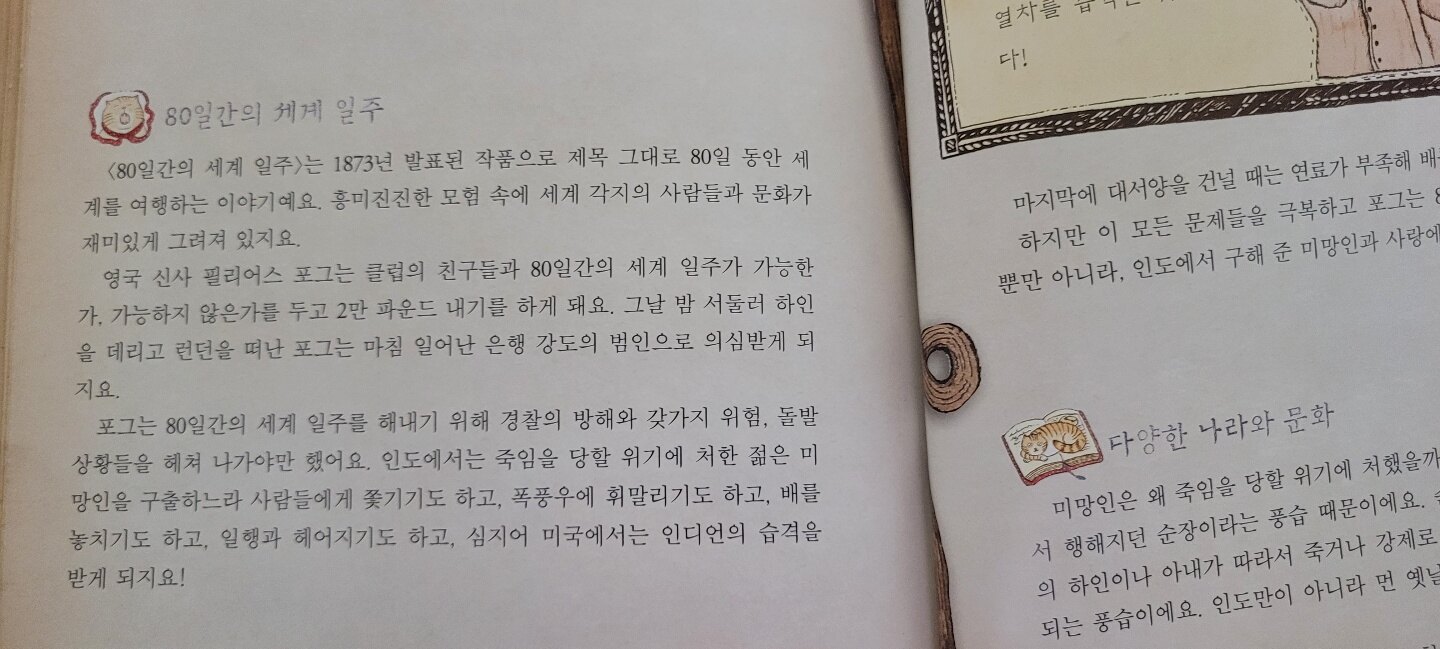 80일간의 세계 일주
〈80일간의 세계 일주〉는 1873년 발표된 작품으로 제목 그대로 80일 동안 세
계를 여행하는 이야기예요. 흥미진진한 모험 속에 세계 각지의 사람들과 문화가
재미있게 그려져 있지요.
영국 신사 필리어스 포그는 클럽의 친구들과 80일간의 세계 일주가 가능한
가, 가능하지 않은가를 두고 2만 파운드 내기를 하게 돼요. 그날 밤 서둘러 하인
을 데리고 런던을 떠난 포그는 마침 일어난 은행 강도의 범인으로 의심받게 되
지요.
포그는 80일간의 세계 일주를 해내기 위해 경찰의 방해와 갖가지 위험, 돌발
상황들을 헤쳐 나가야만 했어요. 인도에서는 죽임을 당할 위기에 처한 젊은 미
망인을 구출하느라 사람들에게 쫓기기도 하고, 폭풍우에 휘말리기도 하고, 배를
놓치기도 하고, 일행과 헤어지기도 하고, 심지어 미국에서는 인디언의 습격을
받게 되지요!
열차를
다!
마지막에 대서양을 건널 때는 연료가 부족해
하지만 이 모든 문제들을 극복하고 포그는
뿐만 아니라, 인도에서 구해 준 미망인과 사랑에
다양한 나라와 문화
미망인은 왜 죽임을 당할 위기에 처했을까
서 행해지던 순장이라는 풍습 때문이에요.
의 하인이나 아내가 따라서 죽거나 강제로
되는 풍습이에요. 인도만이 아니라 먼 옛날